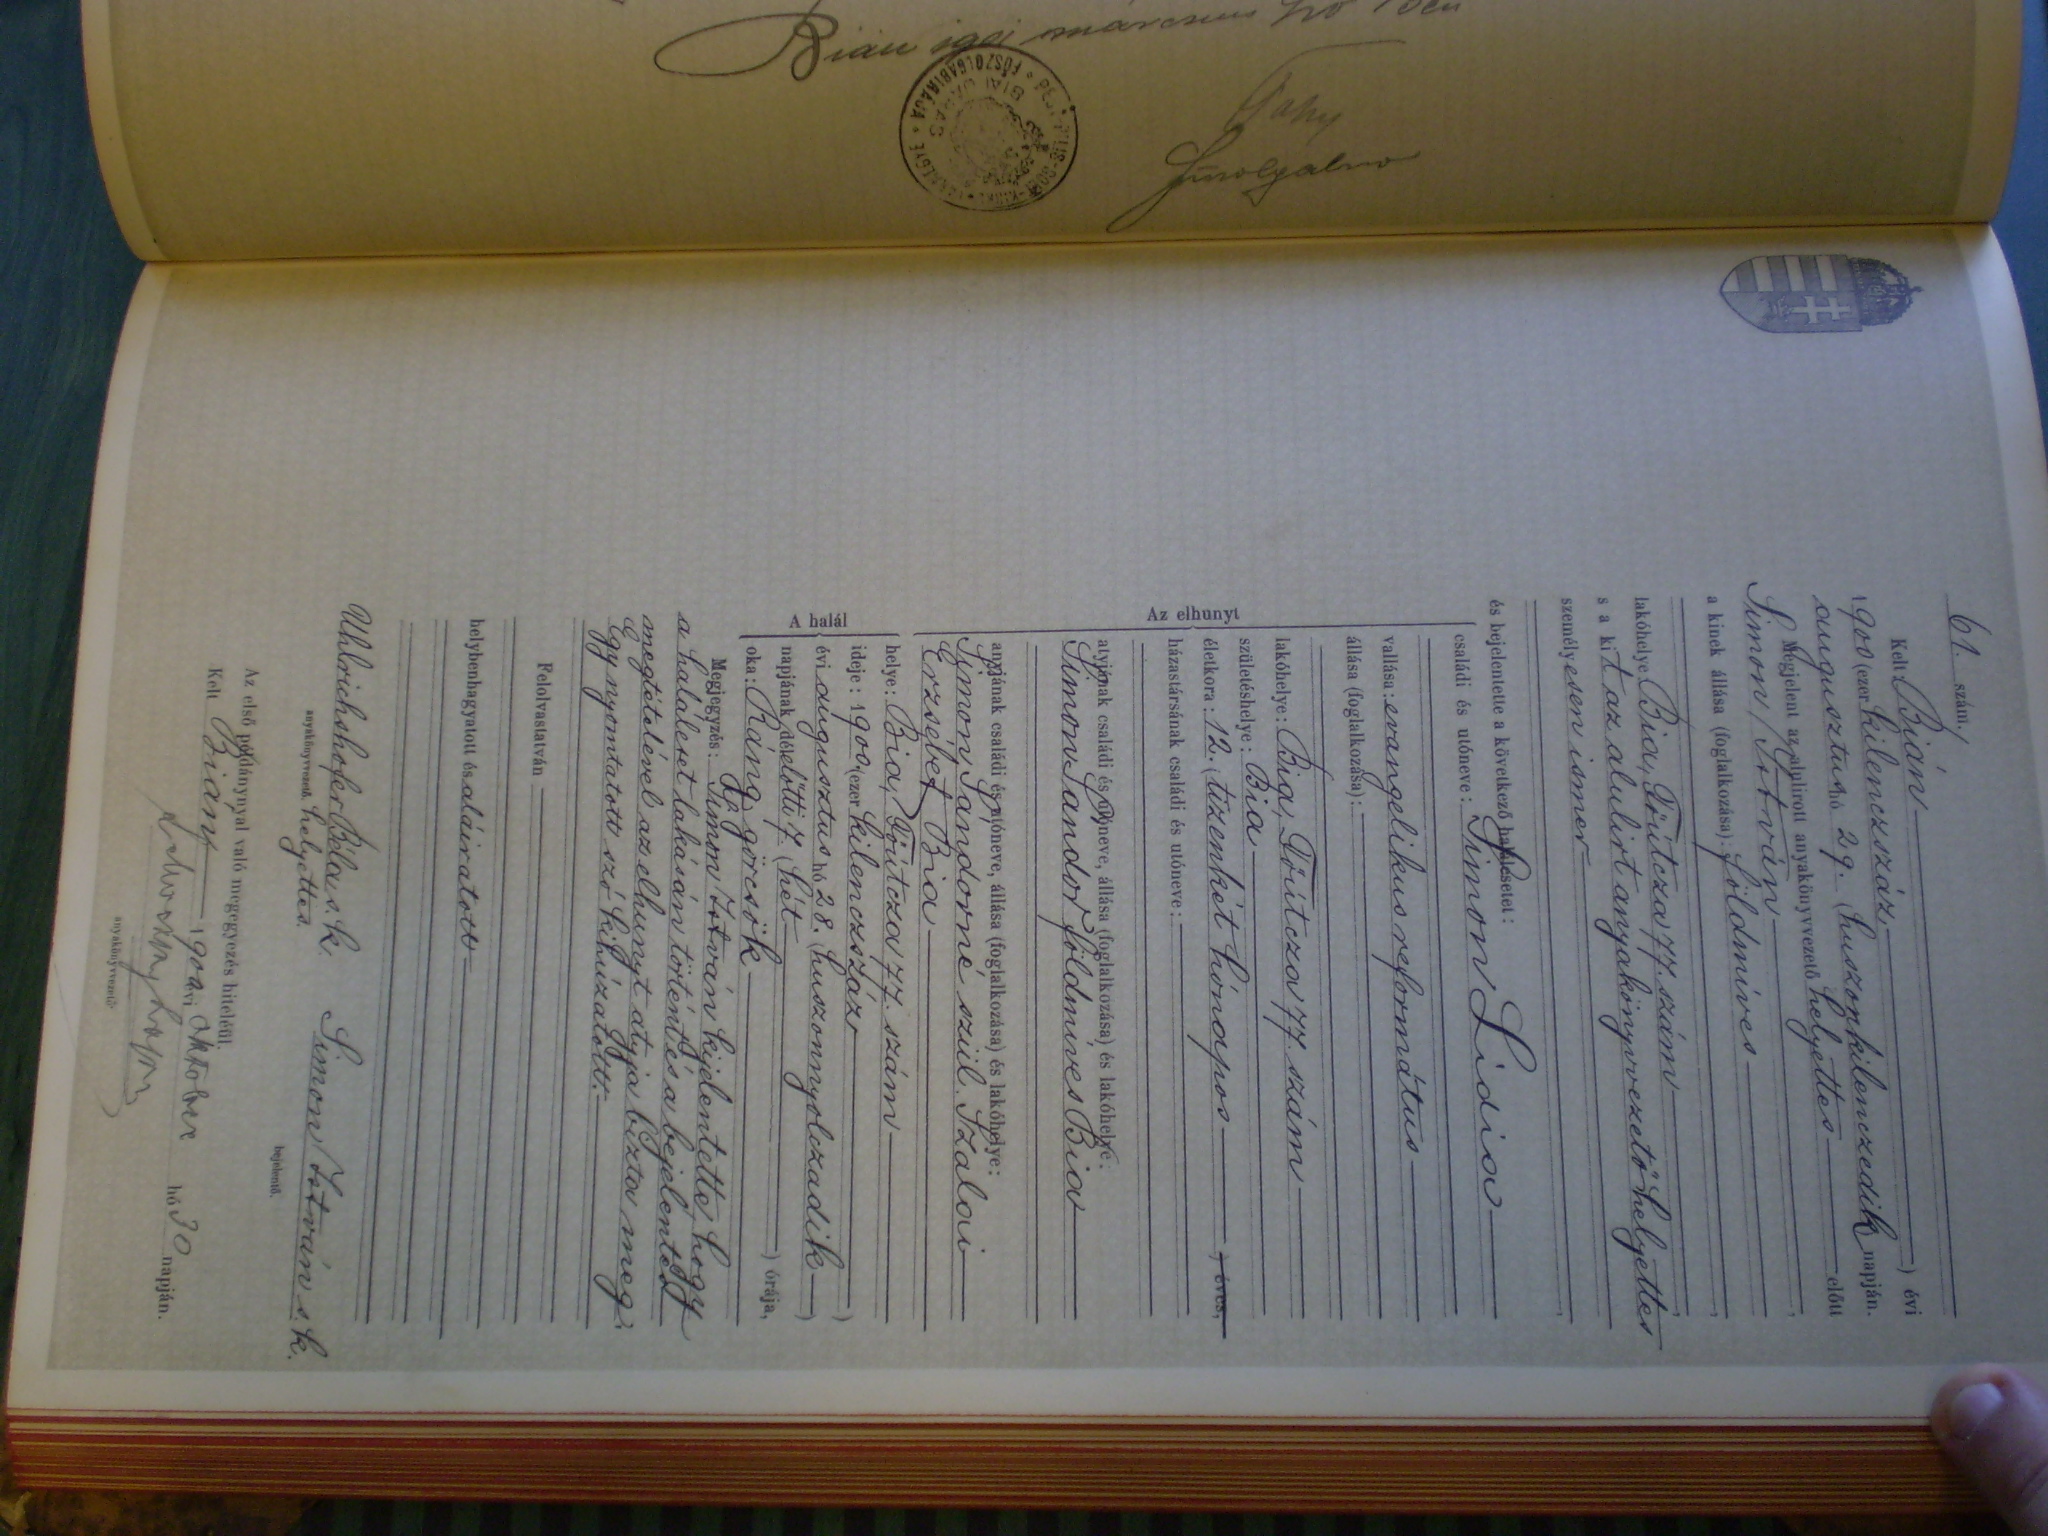 Bián
Főszolgabiró
FŐSZOLGABIRÁJA
BIAI JÁRÁS
61. szám.
Kelt Bián
1900 (ezer kilenczszáz ) évi
augusztus hó 29. (huszonkilenczedik) napján.
Megjelent az alulirott anyakönyvvezető helyettes előtt
Simon István,
a kinek állása (foglalkozása): földmíves,
lakóhelye: Bia, Főútcza 77. szám,
s a kit az alulirt anyakönyvvezető helyettes
személyesen ismer,
és bejelentette a következő halálesetet:
Az elhunyt
családi és utóneve: Simon Lidia
vallása: evangelikus református
állása (foglalkozása):
lakóhelye: Bia, Főútcza 77. szám
születéshelye: Bia
életkora: 12. (tizenkét hónapos ) éves,
házastársának családi és utóneve:
atyjának családi és utóneve, állása (foglalkozása) és lakóhelye:
Simon Sándor földmíves Bia
anyjának családi és utóneve, állása (foglalkozása) és lakóhelye:
Simon Sándorné szül. Szalai
Erzsébet Bia
A halál
helye: Bia, Főútcza 77. szám
ideje: 1900 (ezer kilenczszáz )
évi augusztus hó 28. (huszonnyolczadik )
napjának délelőtti 7. (hét ) órája,
oka: Ráng görcsök
Megjegyzés: Simon István kijelentette, hogy
a haláleset lakásán történt és a bejelentés
megtételével az elhunyt atyja bízta meg.
Egy nyomtatott szó kihúzatott.
Felolvastatván
helybenhagyott és aláiratott
Uhlrichshofer Béla s. k. Simon István s. k.
anyakönyvvezető helyettes. bejelentő.
Az első példánynyal való megegyezés hiteléül.
Kelt Bián 1900 évi október hó 30 napján.
anyakönyvvezető